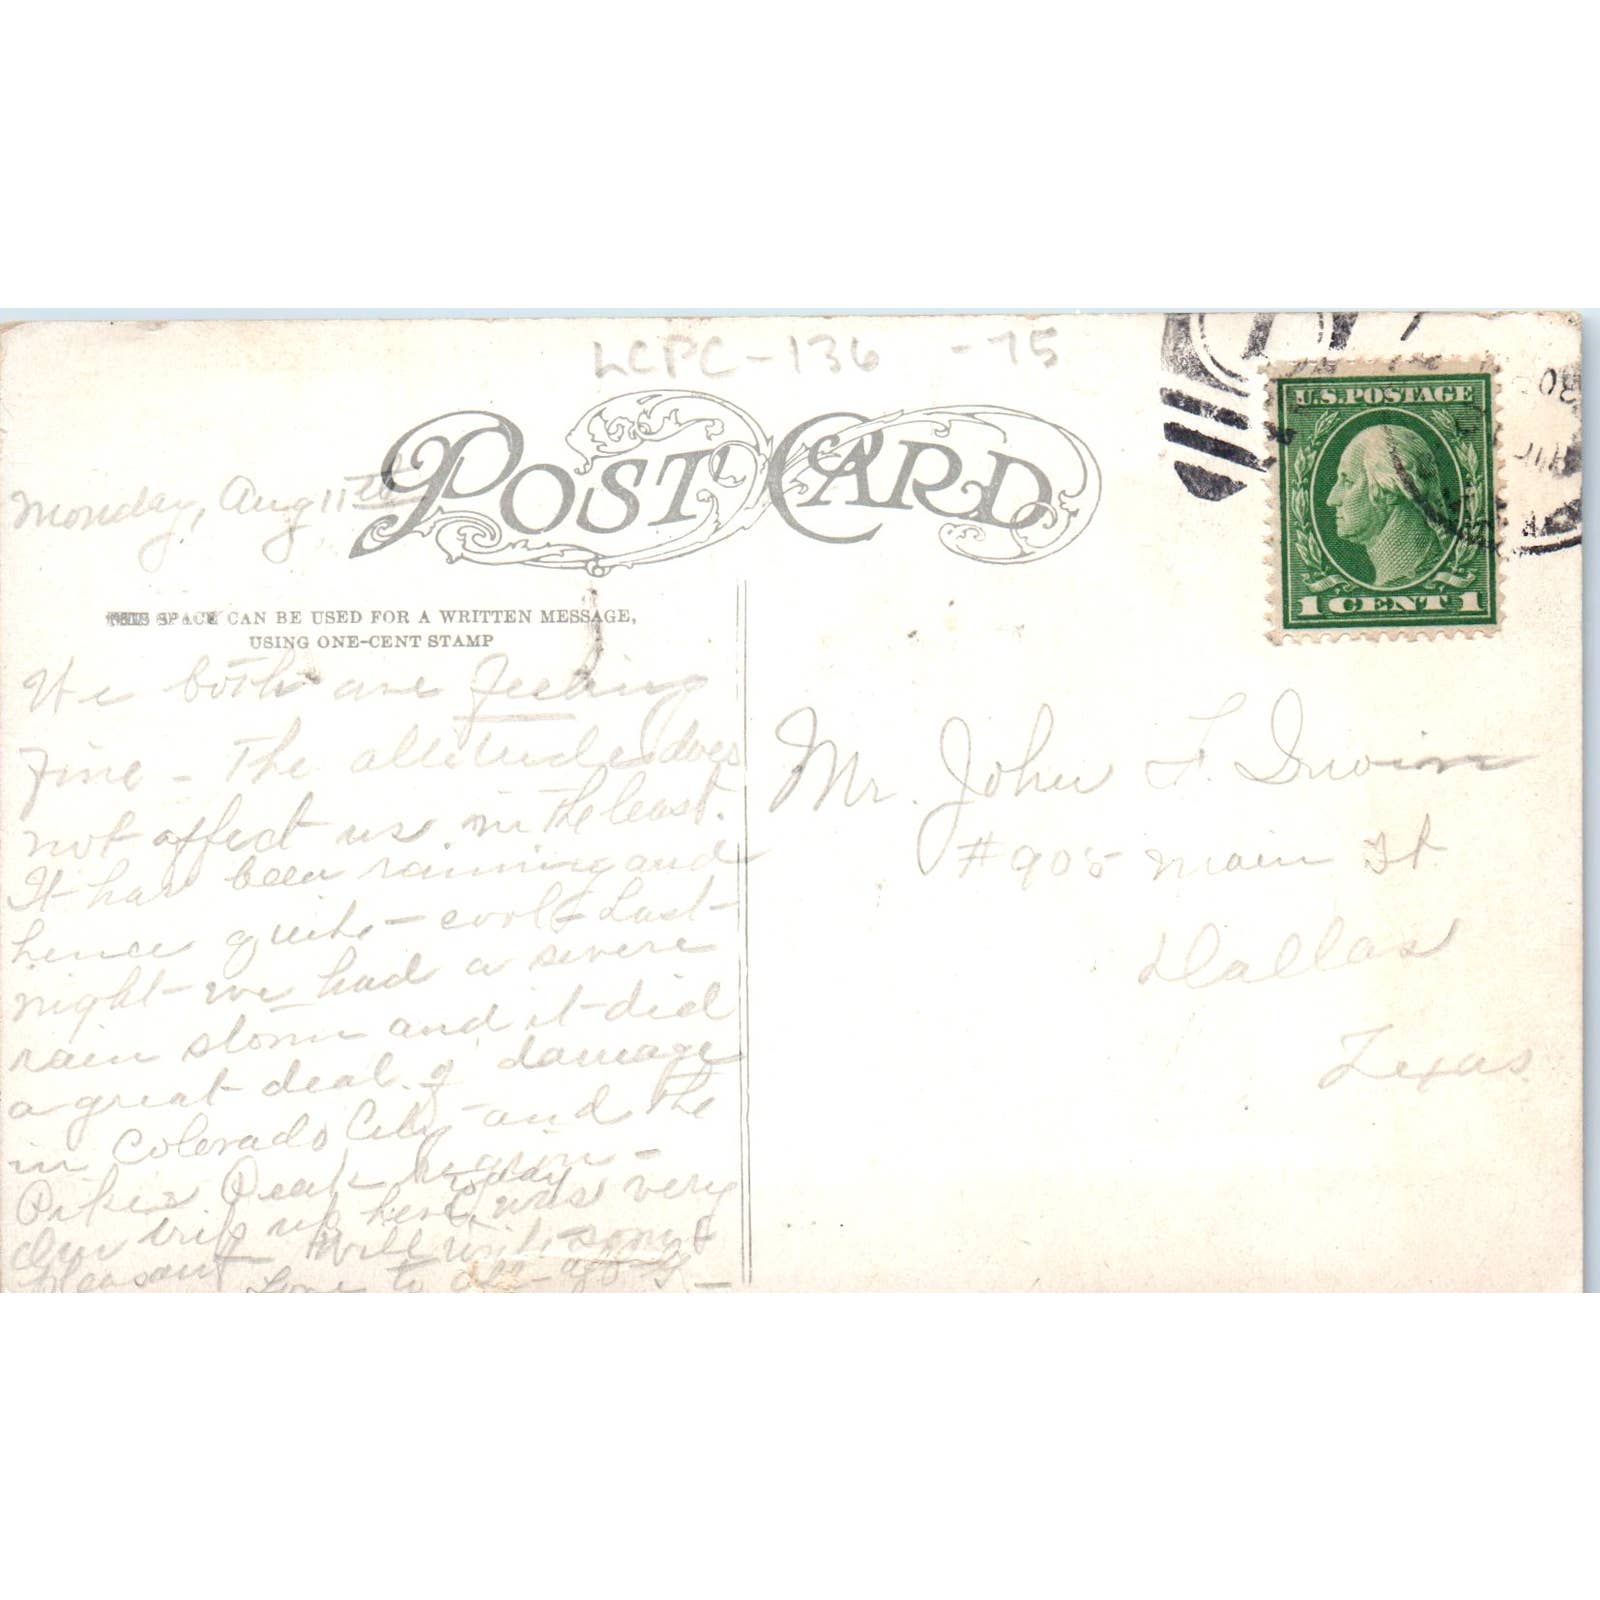 LCPC-136 -75
POST CARD
U.S. POSTAGE
1 CENT 1
Monday, Aug 11th
THIS SPACE CAN BE USED FOR A WRITTEN MESSAGE,
USING ONE-CENT STAMP
We both are feeling
fine - The altitude does
not affect us in the least.
It has been raining and
hence quite - cool - Last
night - we had a severe
rain storm and it did
a great deal of damage
in Colorado City - and the
Pikes Peak Region -
Our trip up here today was very
pleasant Will write some
Love to all -
Mr. John F. Irwin
#905 Main St
Dallas
Texas